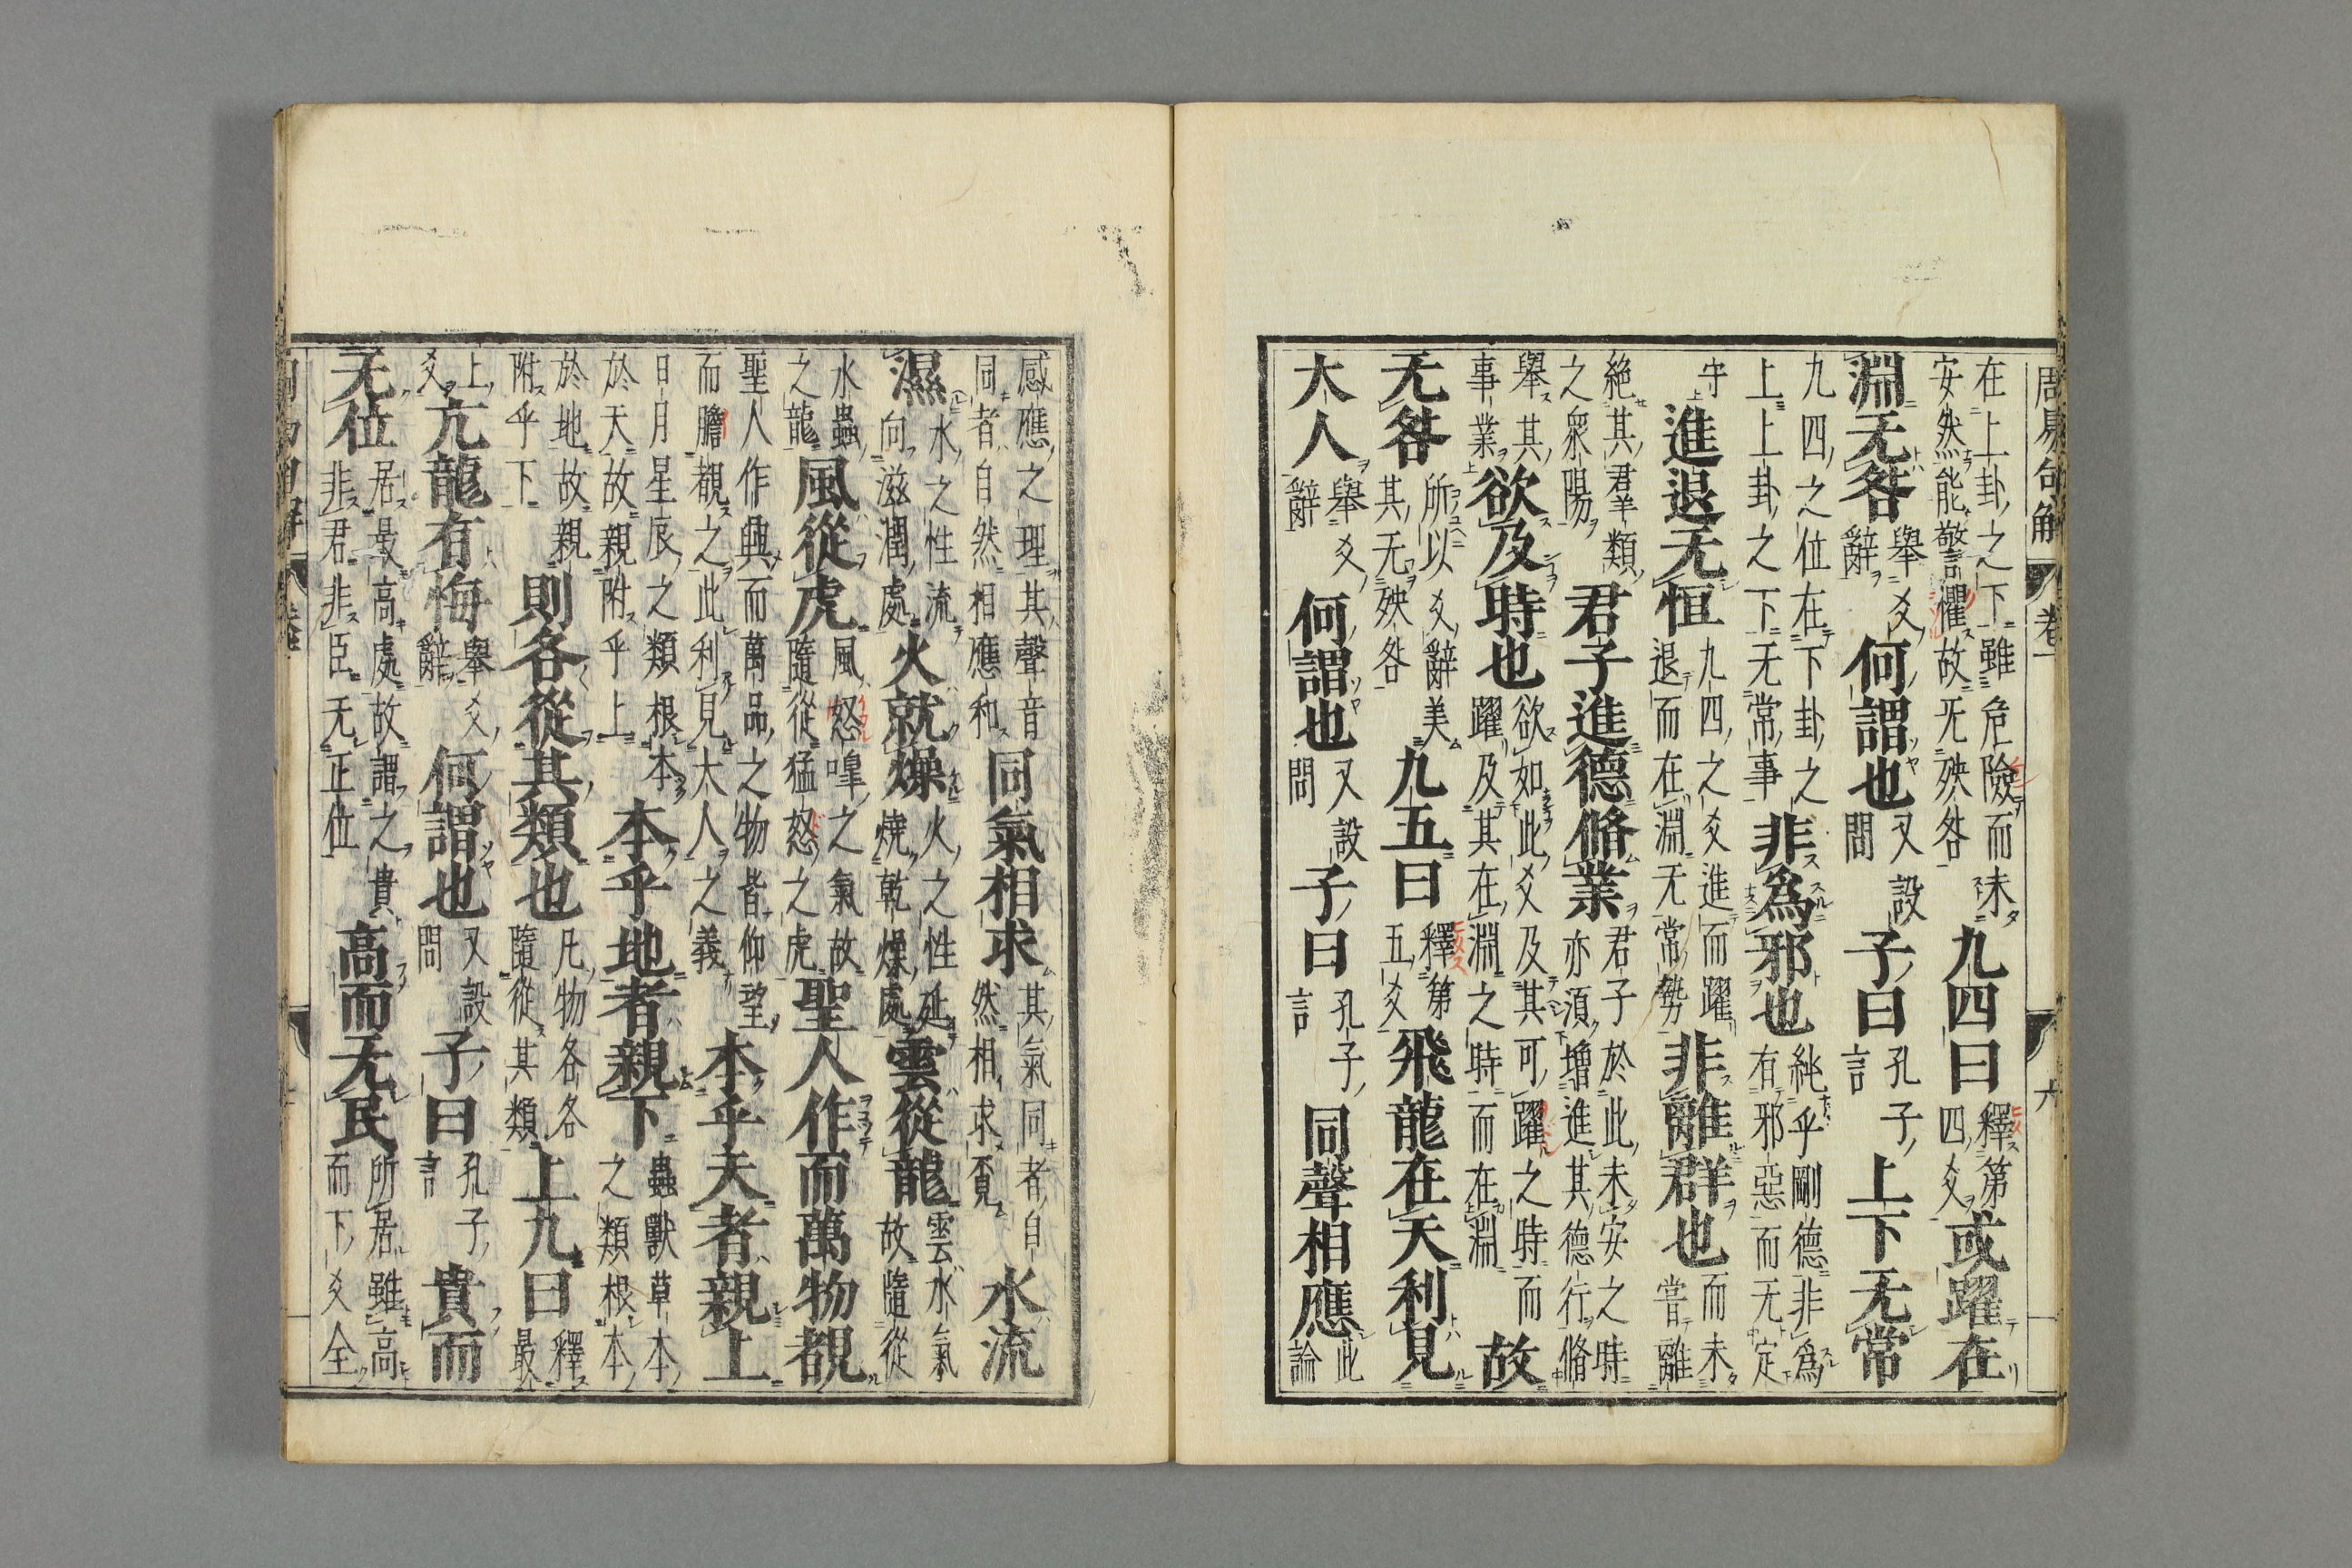 周易句解 卷一 六
在上卦之下雖危險而未安然能警懼故无殃咎九四曰釋第四爻或躍在
淵无咎舉爻辭何謂也又設問子曰孔子言上下无常
九四之位在下卦之上上卦之下无常事非爲邪也純乎剛德非爲有邪惡而无定
守進退无恒九四之爻進而躍退而在淵无常勢非離群也而未嘗離
絶其群類之衆陽君子進德脩業君子於此未安之時亦須增進其德行脩
舉其事業欲及時也欲如此爻及其可躍之時而躍及其在淵之時而在淵故
无咎所以爻辭美其无殃咎九五曰釋第五爻飛龍在天利見
大人舉爻辭何謂也又設問子曰孔子言同聲相應此論
感應之理其聲音同者自然相應和同氣相求其氣同者自然相求覔水流
濕水之性流向滋潤處火就燥火之性延燒乾燥處雲從龍雲水氣故隨從
水蟲之龍風從虎風怒嘷之氣故隨從猛怒之虎聖人作而萬物覩
聖人作興而萬品之物皆仰望而瞻覩之此利見大人之義本乎天者親上
日月星辰之類根本於天故親附乎上本乎地者親下蟲獸草木之類根本
於地故親附乎下則各從其類也凡物各各隨從其類上九曰釋最
上爻亢龍有悔舉爻辭何謂也又設問子曰孔子言貴而
无位居最高處故謂之貴非君非臣无正位高而无民所居雖高而下爻全